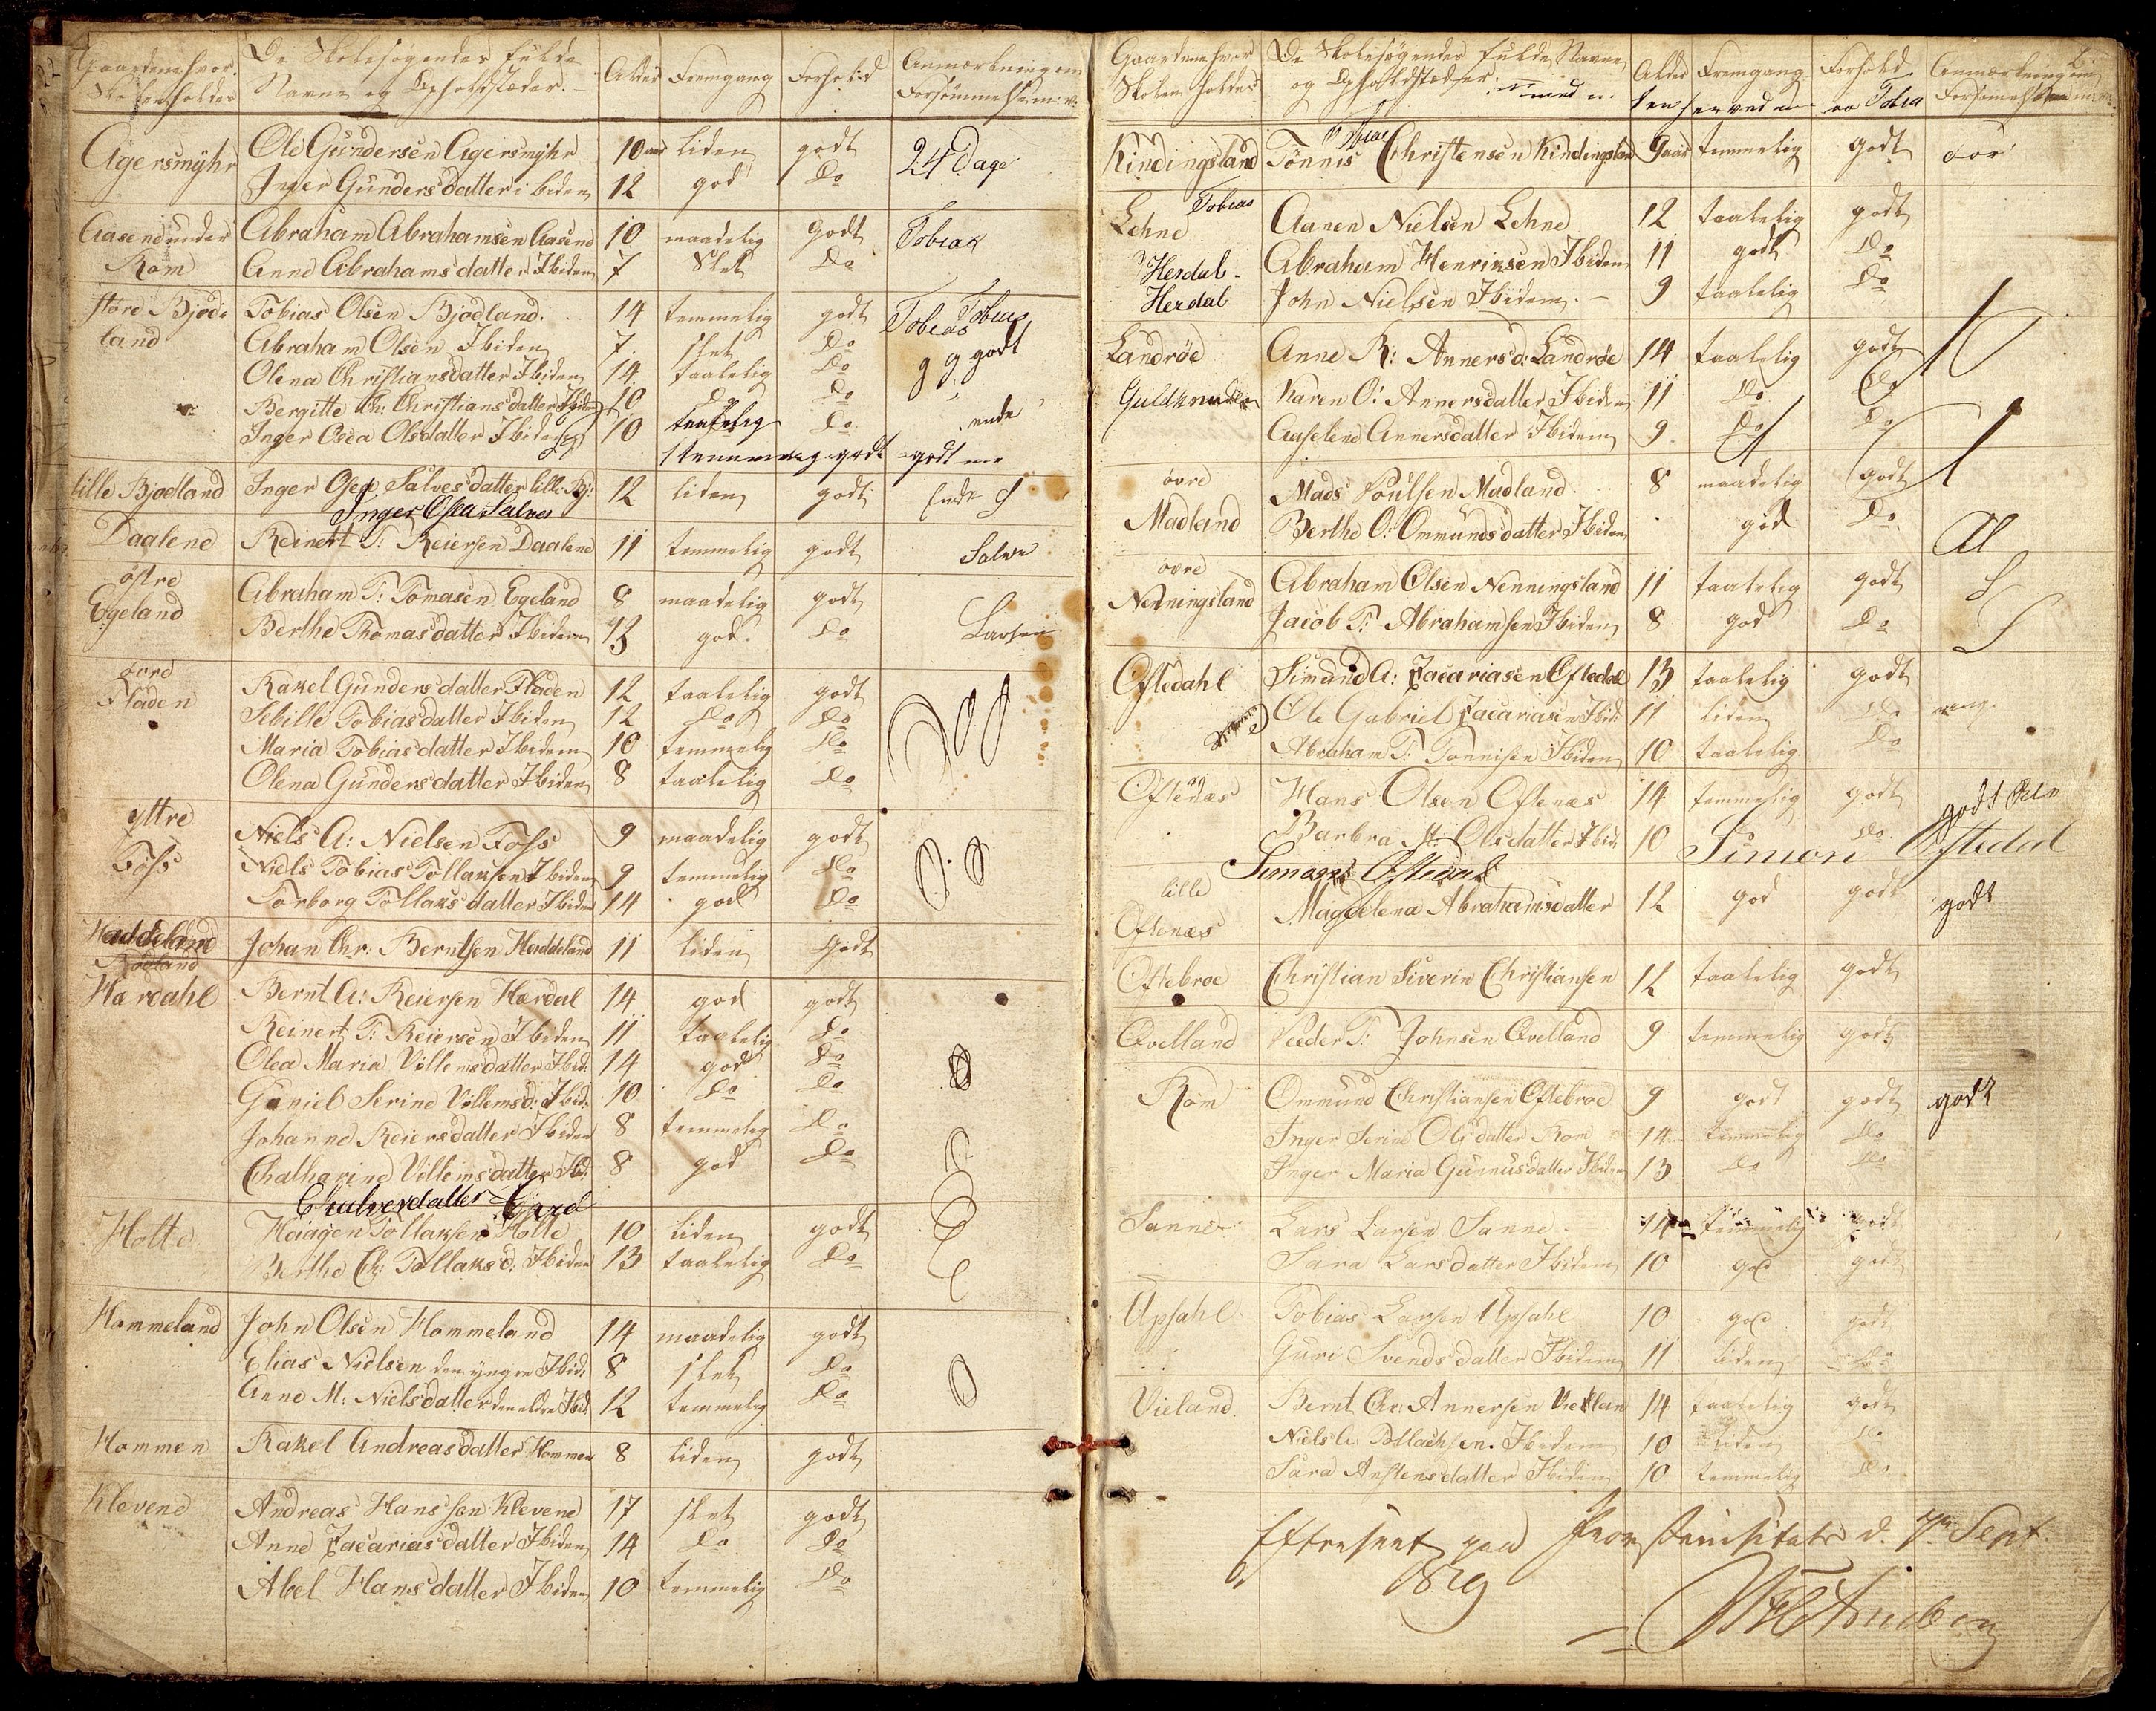 Gaardene hvor De Skolesøgendes fulde Alder Fremgang Forhold Anmærkning om
Skolen holdes Navne og Opholdstæder. Forsømmelse m: v:
Agersmÿhr Ole Gundersen Agersmÿhr 10 aar liden godt 24 Dage
Inger Gundersdatter ibidem 12 god Do
Aasend under Abraham Abrahamsen Aasend 10 maadelig godt Tobiak
Rom Anne Abrahamsdatter Ibidem 7 Slet Do
store Bjød: Tobias Olsen Bjødland. 14 temmelig godt Tobias Tobias
land Abraham Olsen Ibidem 7 slet Do g g godt
Olena Christiansdatter Ibidem 14 taalelig Do
Bergitte Ch: Christiansdatter Ibidem 10 Do Do
Inger Osea Olsdatter Ibidem 10 taalelig Do ende
godt godt
lille Bjødland Inger Osea Salvesdatter lille Bj: 12 liden godt Ende
Inger Osea Salves
Daalene Reinert T: Reiersen Daalene 11 temmelig godt Salve
østre
Egeland Abraham T: Tomasen Egeland 8 maadelig godt
Berthe Thomasdatter Ibidem 13 god. Do Larsen
øvre
Fladen Rakel Gundersdatter Fladen 12 taalelig godt
Sebille Tobiasdatter Ibidem 12 Do Do
Maria Tobiasdatter Ibidem 10 temmelig Do
Olena Gundersdatter Ibidem 8 taalelig Do
yttre
Foss Niels A: Nielsen Foss 9 maadelig godt
Niels Tobias Tollaksen Ibidem 9 temmelig Do
Torborg Tollaksdatter Ibidem 14 god Do
Haddeland Johan Chr: Berntsen Haddeland 11 liden godt
Rødland
Hærdahl Bernt A: Reiersen Hærdal 14 god godt
Reinert T: Reiersen Ibidem 11 taalelig Do
Olea Maria Villemsdatter Ibid: 14 god Do
Guniel Serine Villemsd: Ibid: 10 Do Do
Johanne Reiersdatter Ibidem 8 temmelig Do
Chatharine Villemsdatter Ibid: 8 god Do
Holte Haagen Tollaksen Holte 10 liden godt
Berthe Ch: Tollaksd: Ibidem 13 taalelig Do
Hommeland John Olsen Hommeland 14 maadelig godt
Elias Nielsen den yngre Ibid: 8 slet Do
Anne M: Nielsdatter den eldre Ibid: 12 temmelig Do
Hommen Rakel Andreasdatter Hommen 8 liden godt
Klevene Andreas Hanssen Klevene 17 slet godt
Anne Zacariasdatter Ibidem 14 Do Do
Abel Hansdatter Ibidem 10 temmelig Do
Gaardene hvor De Skolesøgendes fulde Navne Alder Fremgang Forhold Anmærkning om
Skolen holdes og Opholdstæder. Tobia Forsømmelse m: v:
Kindingsland Tønnis Christensen Kindingsland 9 aar temmelig godt
Tobias
Lehne Aanen Nielsen Lehne 12 taalelig godt
Herdal Abraham Henriksen Ibidem 11 godt Do
Herdal John Nielsen Ibidem. 9 taalelig Do
Landrøe Anne K: Annersd: Landrøe 14 taalelig godt
Karen O: Annersdatter Ibidem 11 Do Do
Aaselene Annersdatter Ibidem 9 Do Do
øvre
Madland Mads Poulsen Madland 8 maadelig godt
Berthe O: Ommundsdatter Ibidem god Do
øvre
Nenningsland Abraham Olsen Nenningsland 11 taalelig godt
Jacob T: Abrahamsen Ibidem 8 god Do
Oftedahl Simund A: Zacariasen Oftedal 13 taalelig godt
Ole Gabriel Zacariasen Ibid: 11 liden Do
Abraham T: Tønnisen Ibidem 10 taalelig Do
Oftenæs Hans Olsen Oftenæs 14 temmelig godt godt
Barbra M: Olsdatter Ibid: 10 Do Do
Simon Oftedal
lille
Oftenæs Magdelena Abrahamsdatter 12 god godt godt
Oftebroe Christian Siverin Christiansen 12 taalelig godt
Qvelland Peeder T: Johnsen Qvelland 9 temmelig godt
Rom Ommund Christiansen Oftebroe 9 godt godt godt
Inger Serine Olsdatter Rom 14 temmelig Do
Inger Maria Gunnusdatter Ibidem 13 Do Do
Sanne Lars Larsen Sanne 14 temmelig godt
Sara Larsdatter Ibidem 10 god godt
Upsahl Tobias Larsen Upsahl 10 god godt
Guri Svendsdatter Ibidem 11 liden Do
Vieland. Bernt Chr: Annersen Vieland 14 taalelig godt
Niels A: Tollachsen. Ibidem 10 liden Do
Sara Anstensdatter Ibidem 10 temmelig Do
Efterseet paa d. 7de Sept.
1829